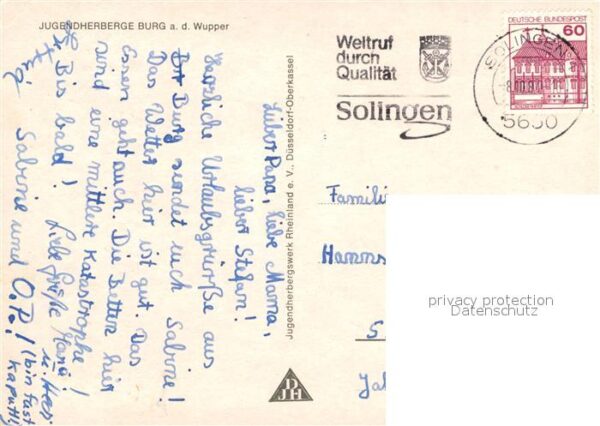 JUGENDHERBERGE BURG a. d. Wupper
Lieber Papa, liebe Mama,
lieber Stefan!
Herzliche Urlaubsgrüße aus
Burg sendet euch Sabine!
Das Wetter hier ist gut. Das
Essen geht auch. Die Betten hier
sind eine mittlere Katastrophe!
Bis bald! Liebe Grüße
Sabine und O.P.! (bin fast
kaputt!)
Jugendherbergswerk Rheinland e. V., Düsseldorf-Oberkassel
DJH
Weltruf
durch
Qualität
Solingen
SOLINGEN
5650
DEUTSCHE BUNDESPOST
60
Famili
Hamms
5
privacy protection
Datenschutz